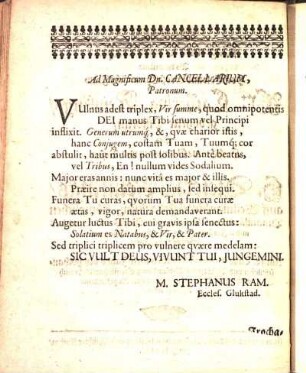 Ad Magnificum Dn. CANCELLARIUM,
Patronum.
VUlnus adest triplex, Vir summe, quod omnipotentis
DEI manus Tibi senum vel Principi
inflixit. Generum utrumq́, &, quæ charior istis,
hanc Conjugem, costam Tuam, Tuumq́; cor
abstulit, haut multis post solibus. Antè beatus,
vel Tribus, En! nullum vides Sodalium.
Major eras annis: nunc vitâ es major & illis.
Præire non datum amplius, sed insequi.
Funera Tu curas, quorum Tua funera curæ
ætas, vigor, natura demandaverant.
Augetur luctus Tibi, cui gravis ipsa senectus:
Solatium es Natabus, & Vir, & Pater.
Sed triplici triplicem pro vulnere quære medelam:
SIC VULT DEUS, VIVUNT TUI, JUNGEMINI.
M. STEPHANUS RAM.
Eccles. Glukstad.
Trocha-